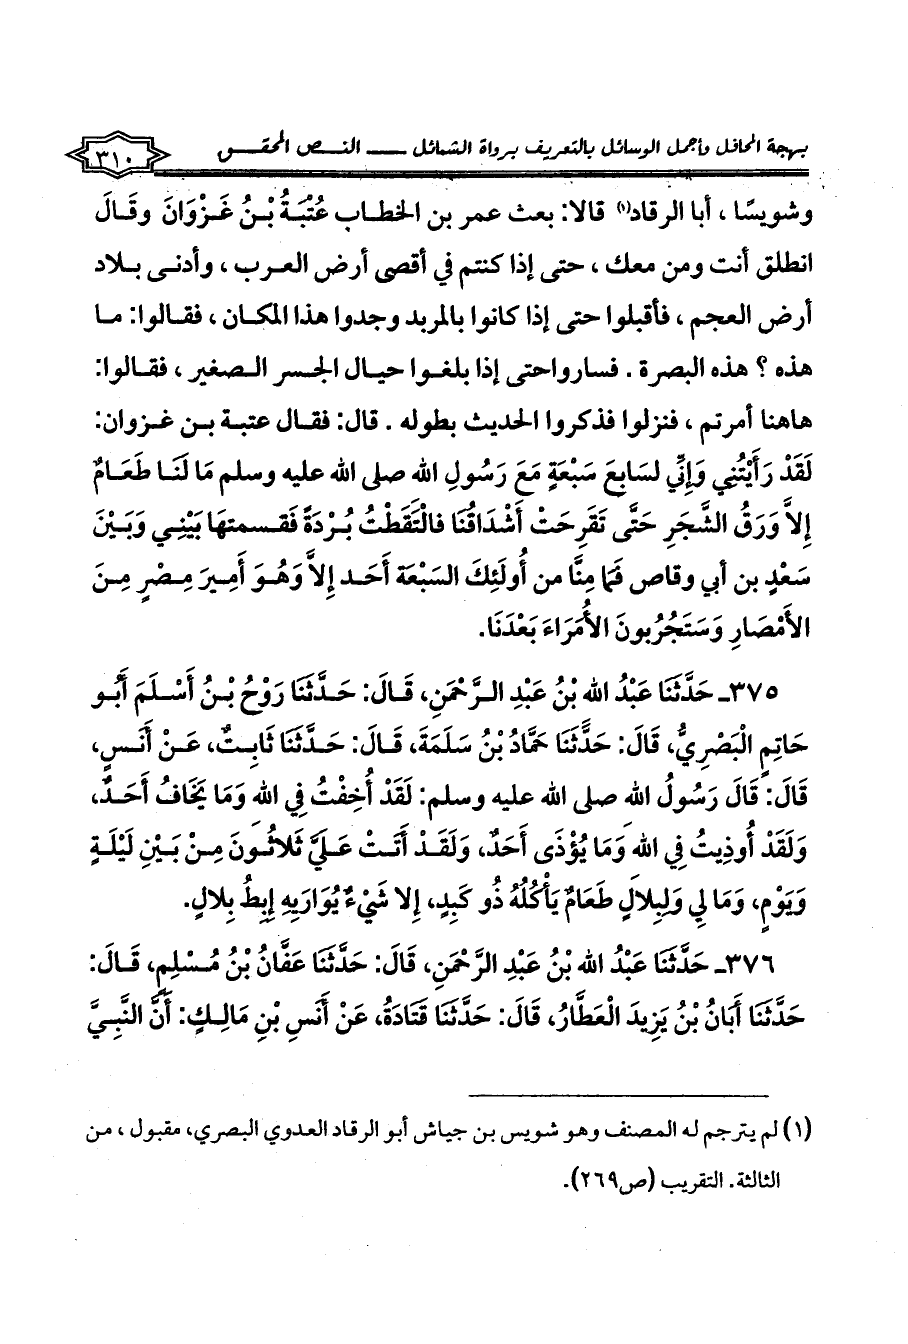 بهجة المحافل وأجمل الوسائل بالتعريف برواة الشمائل ـــ النـــص المحقـــق
٣١٠
وشويسًا ، أبا الرقاد(١) قالا: بعث عمر بن الخطاب عُتْبَةُ بْنُ غَزْوَانَ وقَالَ
انطلق أنت ومن معك ، حتى إذا كنتم في أقصى أرض العرب ، وأدنى بلاد
أرض العجم ، فأقبلوا حتى إذا كانوا بالمربد وجدوا هذا المكان ، فقالوا: ما
هذه ؟ هذه البصرة . فساروا حتى إذا بلغوا حيال الجسر الصغير ، فقالوا:
هاهنا أمرتم ، فنزلوا فذكروا الحديث بطوله . قال: فقال عتبة بن غزوان:
لَقَدْ رَأَيْتُنِي وَإِنِّي لسَابِعَ سَبْعَةٍ مَعَ رَسُولِ الله صلى الله عليه وسلم مَا لَنَا طَعَامٌ
إِلاَّ وَرَقُ الشَّجَرِ حَتَّى تَقَرحَتْ أَشْدَاقُنَا فالْتَقَطْتُ بُرْدَةً فَقَسمتها بَيْنِي وَبَيْنَ
سَعْدٍ بن أبي وقاص فَمَا مِنَّا من أُولَئِكَ السَبْعَة أَحَد إِلاَّ وَهُوَ أَمِيرَ مِصْرٍ مِنَ
الأَمْصَارِ وَسَتَجُرُبونَ الأُمَرَاءَ بَعْدَنَا.
٣٧٥ـ حَدَّثَنَا عَبْدُ الله بْنُ عَبْدِ الرَّحْمَنِ، قَالَ: حَدَّثَنَا رَوْحُ بْنُ أَسْلَمَ أَبُو
حَاتِمٍ الْبَصْرِيُّ، قَالَ: حَدَّثَنَا حَمَّادُ بْنُ سَلَمَةَ، قَالَ: حَدَّثَنَا ثَابِتٌ، عَنْ أَنَسٍ،
قَالَ: قَالَ رَسُولُ الله صلى الله عليه وسلم: لَقَدْ أُخِفْتُ فِي الله وَمَا يَخَافُ أَحَدٌ،
وَلَقَدْ أُوذِيتُ فِي الله وَمَا يُؤْذَى أَحَدٌ، وَلَقَدْ أَتَتْ عَلَيَّ ثَلاثُونَ مِنْ بَيْنِ لَيْلَةٍ
وَيَوْمٍ، وَمَا لِي وَلِبِلالٍ طَعَامٌ يَأْكُلُهُ ذُو كَبِدٍ، إِلا شَيْءٌ يُوَارِيهِ إِبِطُ بِلالٍ.
٣٧٦ـ حَدَّثَنَا عَبْدُ الله بْنُ عَبْدِ الرَّحْمَنِ، قَالَ: حَدَّثَنَا عَفَّانُ بْنُ مُسْلِمٍ، قَالَ:
حَدَّثَنَا أَبَانُ بْنُ يَزِيدَ الْعَطَّارُ، قَالَ: حَدَّثَنَا قَتَادَةُ، عَنْ أَنَسِ بْنِ مَالِكٍ: أَنَّ النَّبِيَّ
(١) لم يترجم له المصنف وهو شويس بن جياش أبو الرقاد العدوي البصري، مقبول ، من
الثالثة. التقريب (ص٢٦٩).